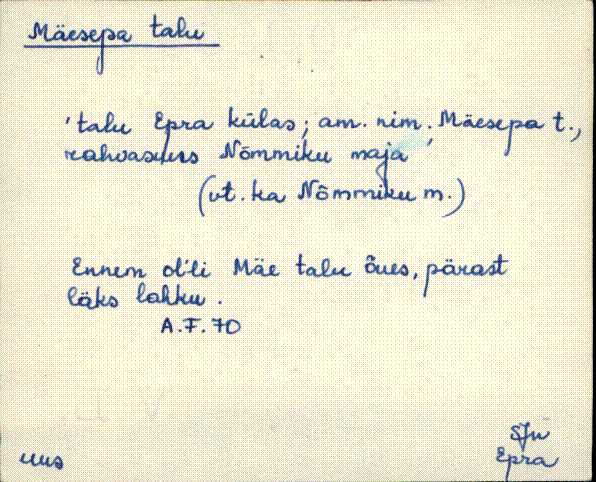 Mäesepa talu
'talu Epra külas; am. nim. Mäesepa t.,
rahvasuus Nõmmiku maja'
(vt. ka Nõmmiku m.)
Ennem ol'li Mäe talu õues, pärast
läks lahku.
A.F. 70
SJn
uus
Epra